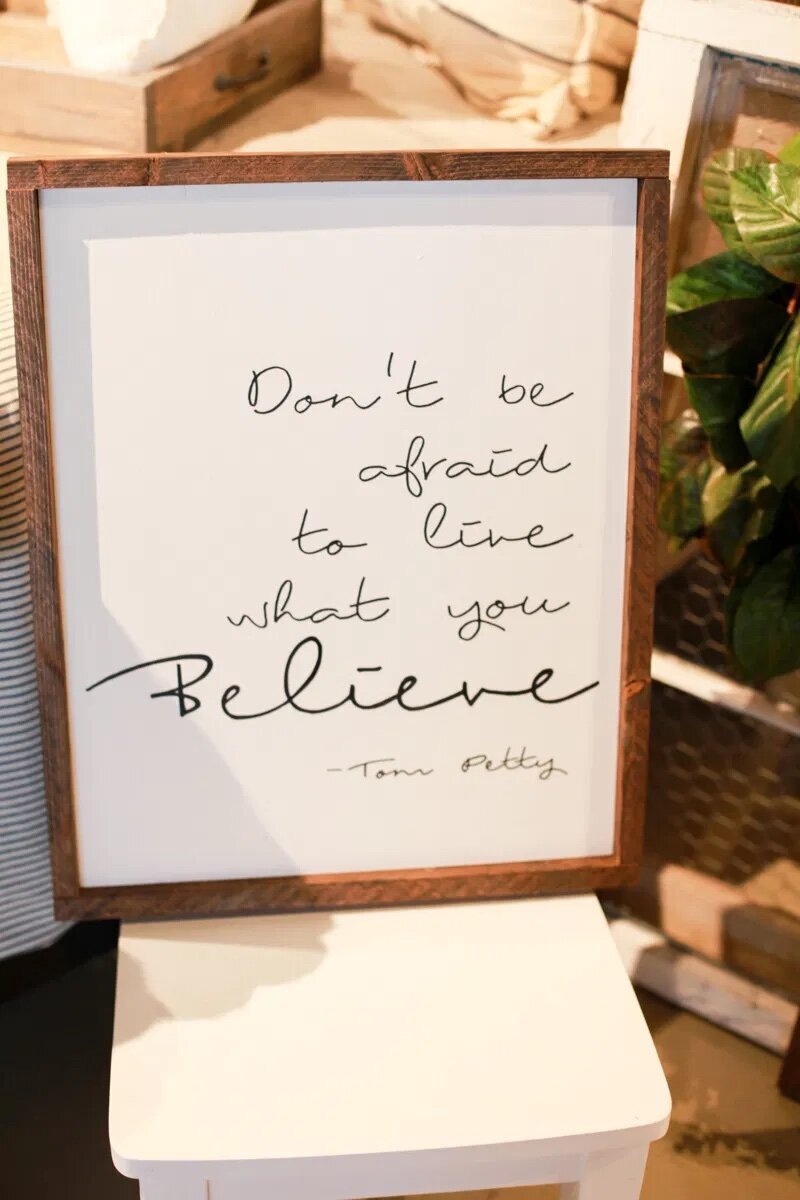 Don't be
afraid
to live
what you
Believe
-Tom Petty